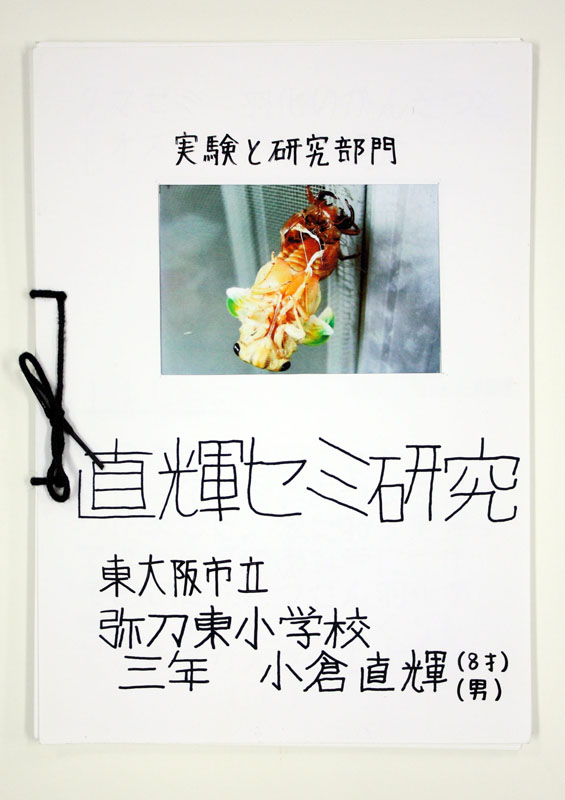 実験と研究部門
直輝セミ研究
東大阪市立
弥刀東小学校
三年 小倉直輝(8才)
(男)